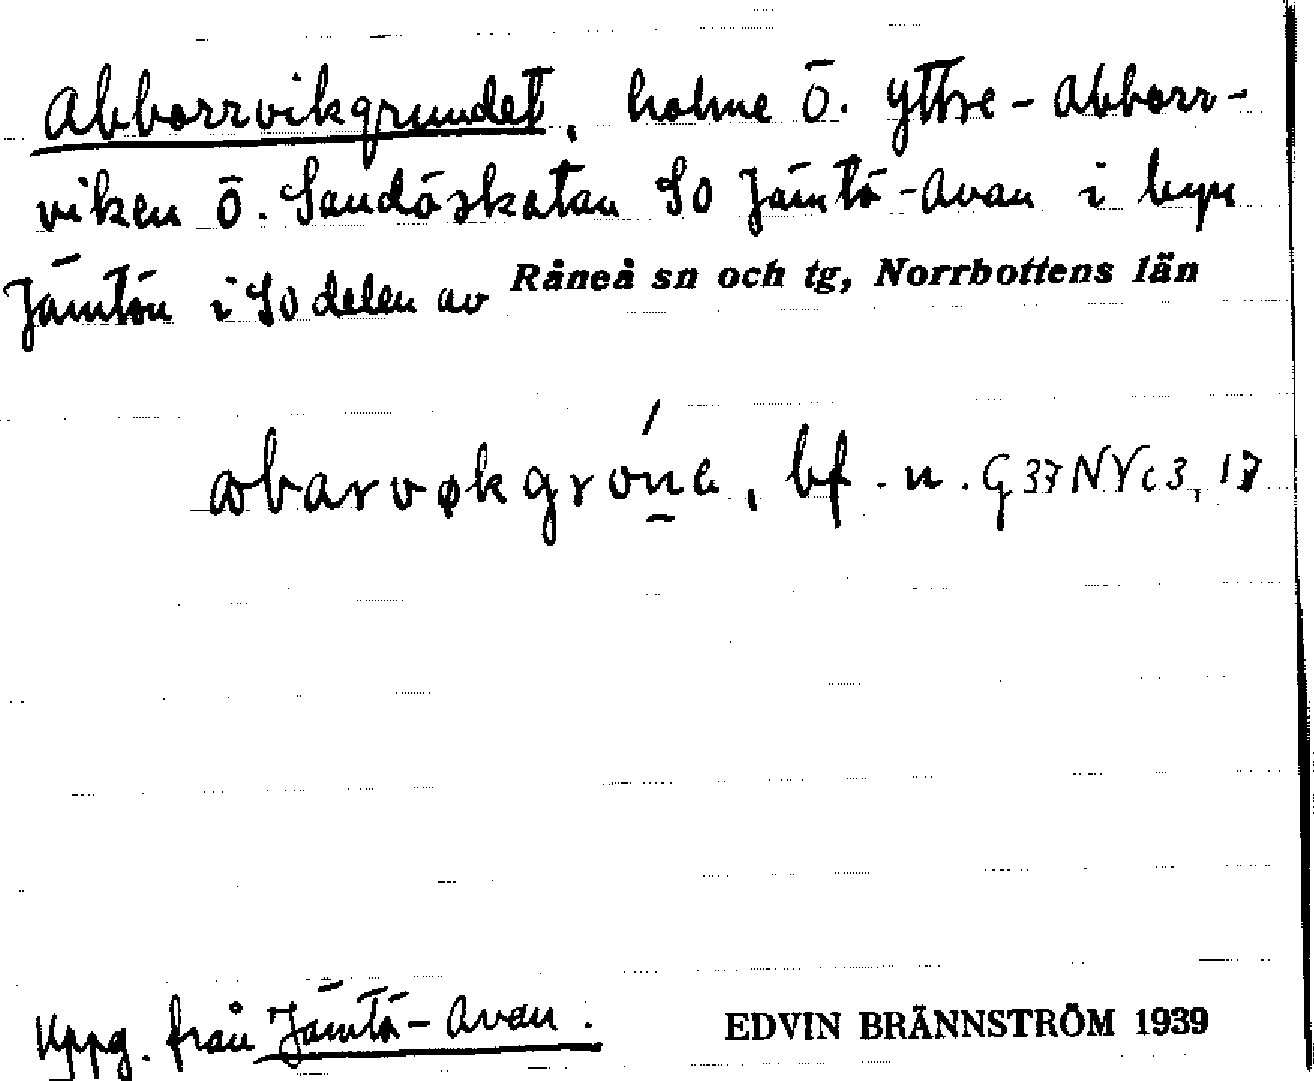 Abborrvikgrundet, holme Ö. Yttre-Abborr-
viken Ö. Sandöskatan SO Jämtö-Avan i byn
Jämtön i SO delen av Råneå sn och tg, Norrbottens län
bf. n. G 37 NV c 3, 17
Uppg. från Jämtö-Avan. EDVIN BRÄNNSTRÖM 1939